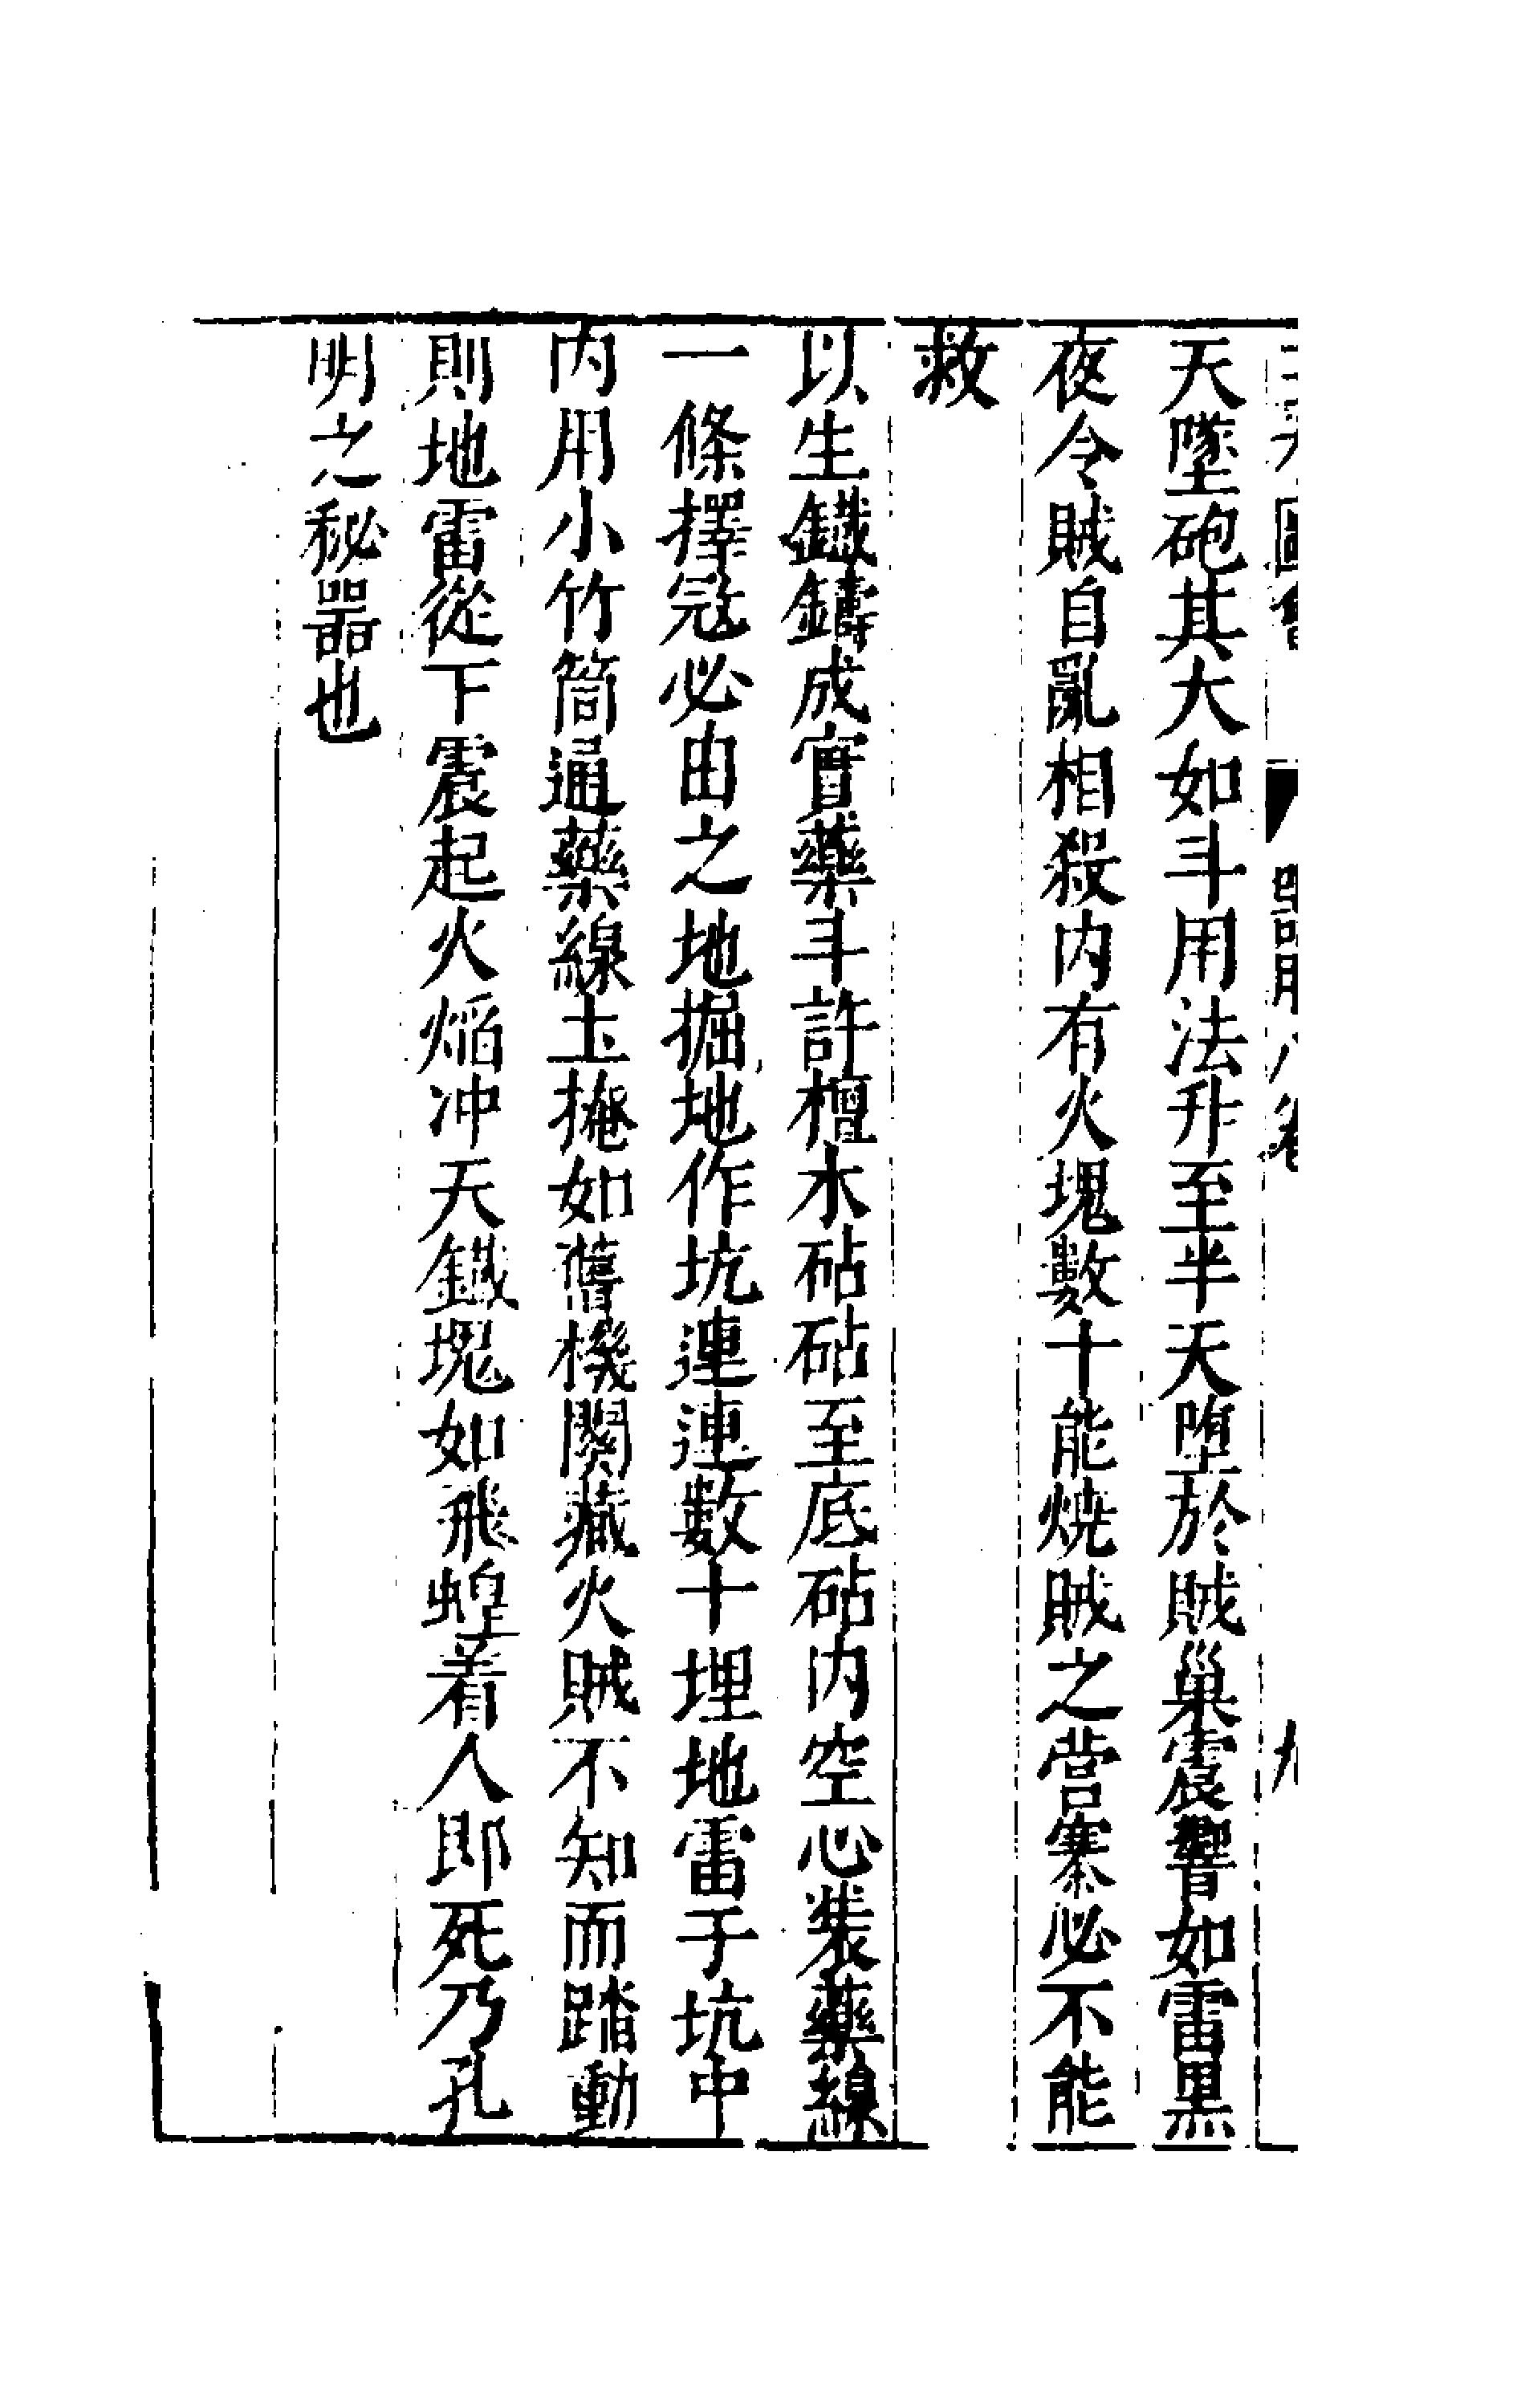 圖會 器用八卷
天墜砲其大如斗用法升至半天墮於賊巢震響如雷黑
夜令賊自亂相殺内有火塊數十能燒賊之營寨必不能
救
以生鐵鑄成實藥斗許檀木砧砧至底砧内空心裝藥線
一條擇宼必由之地掘地作坑連連數十埋地雷于坑中
内用小竹筒通藥線土掩如舊機關藏火賊不知而踏動
則地雷從下震起火焰冲天鐵塊如飛蝗着人即死乃孔
明之秘器也